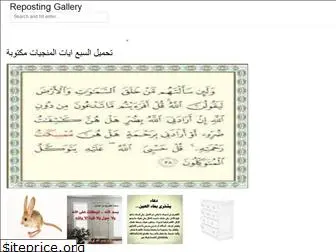 Reposting Gallery
Search and hit enter..
تحميل السبع ايات المنجيات مكتوبة
وَلَئِن سَأَلْتَهُم مَّنْ خَلَقَ السَّمَٰوَٰتِ وَالْأَرْضَ
لَيَقُولُنَّ اللَّهُ قُلْ أَفَرَءَيْتُم مَّا تَدْعُونَ مِن دُونِ
اللَّهِ إِنْ أَرَادَنِيَ اللَّهُ بِضُرٍّ هَلْ هُنَّ كَٰشِفَٰتُ
ضُرِّهِ أَوْ أَرَادَنِي بِرَحْمَةٍ هَلْ هُنَّ مُمْسِكَٰتُ
رَحْمَتِهِ قُلْ حَسْبِيَ اللَّهُ عَلَيْهِ يَتَوَكَّلُ
الْمُتَوَكِّلُونَ ٣٨
دعاء
sitesview.com